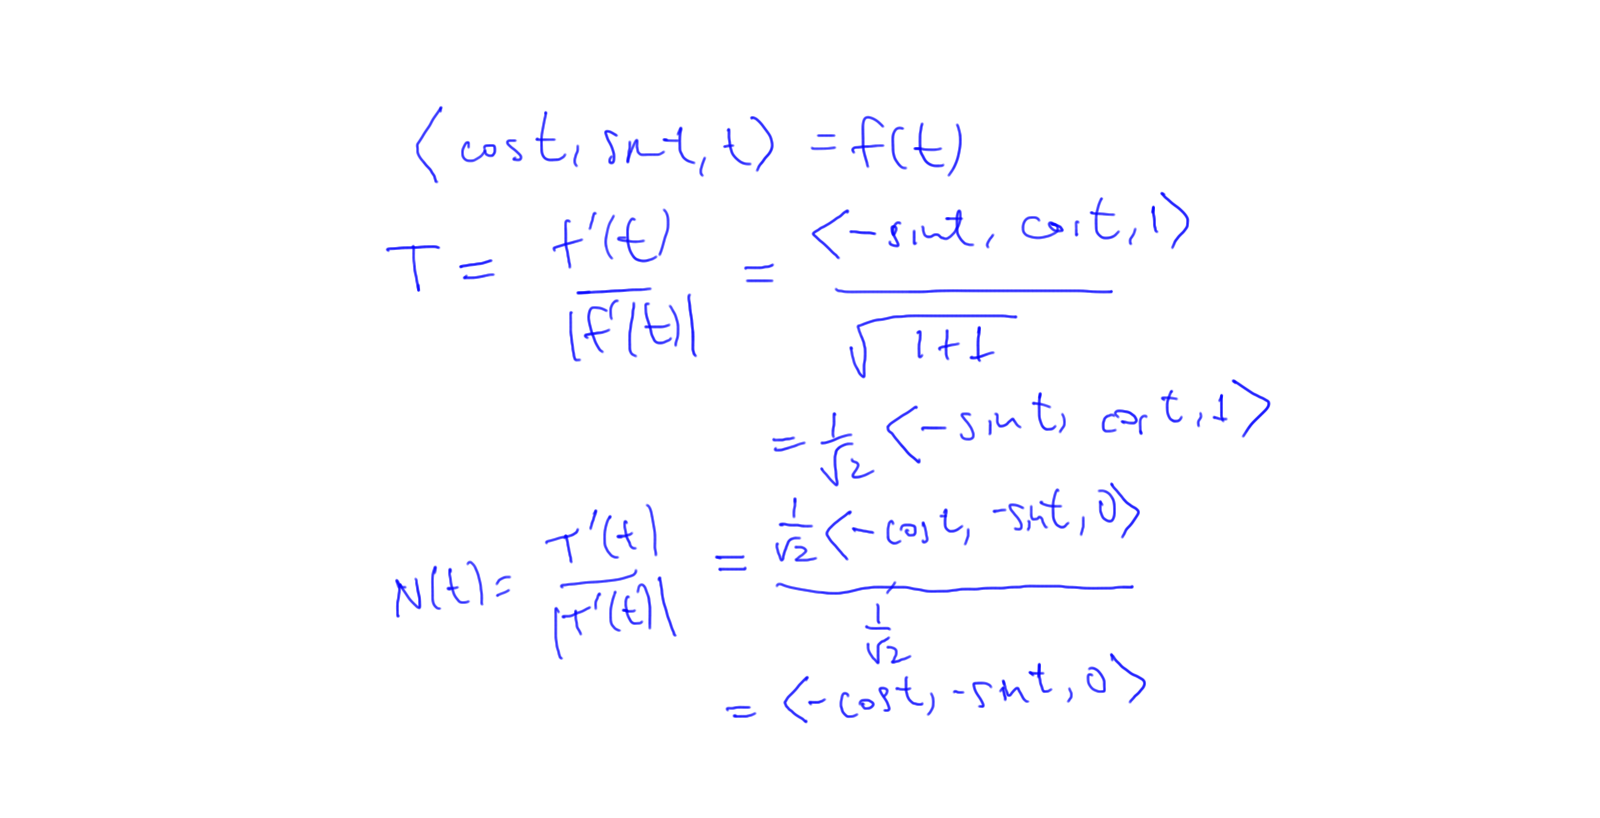 ⟨cos t, sin t, t⟩ = f(t)
T = f'(t) / |f'(t)| = ⟨-sin t, cos t, 1⟩ / √(1+1)
= 1/√2 ⟨-sin t, cos t, 1⟩
N(t) = T'(t) / |T'(t)| = 1/√2 ⟨-cos t, -sin t, 0⟩ / 1/√2
= ⟨-cos t, -sin t, 0⟩